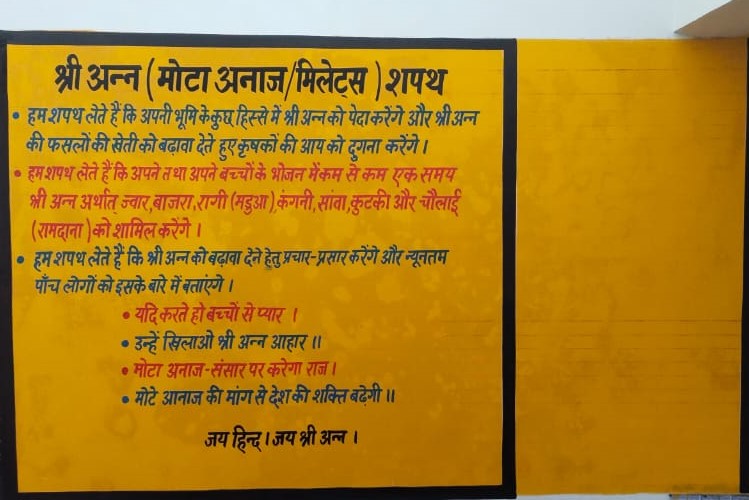 श्री अन्न (मोटा अनाज/मिलेट्स) शपथ
• हम शपथ लेते हैं कि अपनी भूमि के कुछ हिस्से में श्री अन्न को पैदा करेंगे और श्री अन्न
की फसलों की खेती को बढ़ावा देते हुए कृषकों की आय को दुगना करेंगे।
• हम शपथ लेते हैं कि अपने तथा अपने बच्चों के भोजन में कम से कम एक समय
श्री अन्न अर्थात् ज्वार, बाजरा, रागी (मडुआ), कंगनी, सांवा, कुटकी और चौलाई
(रामदाना) को शामिल करेंगे।
• हम शपथ लेते हैं कि श्री अन्न को बढ़ावा देने हेतु प्रचार-प्रसार करेंगे और न्यूनतम
पाँच लोगों को इसके बारे में बताएंगे।
• यदि करते हो बच्चों से प्यार ।
• उन्हें खिलाओ श्री अन्न आहार ॥
• मोटा अनाज-संसार पर करेगा राज।
• मोटे आनाज की मांग से देश की शक्ति बढेगी ॥
जय हिन्द। जय श्री अन्न ।